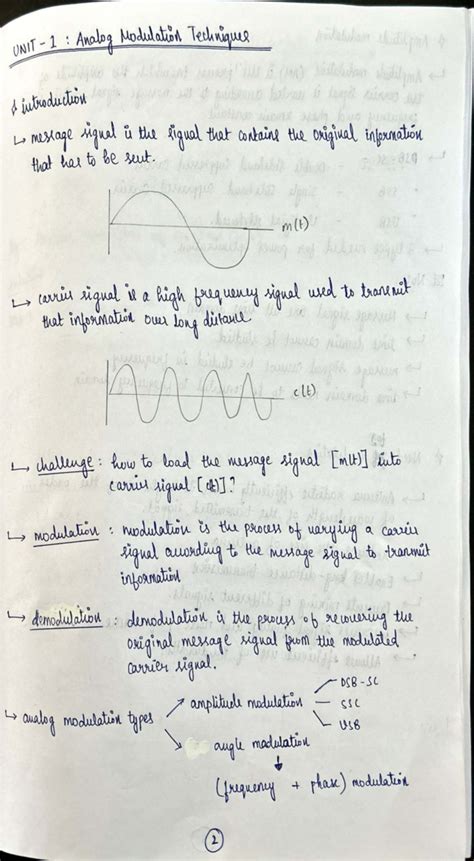 UNIT - 1 : Analog Modulation Techniques
# introduction
↳ message signal is the signal that contains the original information
that has to be sent.
m(t)
↳ carrier signal is a high frequency signal used to transmit
that information over long distance
c(t)
↳ challenge : how to load the message signal [m(t)] into
carrier signal [c(t)] ?
↳ modulation : modulation is the process of varying a carrier
signal according to the message signal to transmit
information
↳ demodulation : demodulation is the process of recovering the
original message signal from the modulated
carrier signal.
DSB-SC
↳ analog modulation types → amplitude modulation — SSC
VSB
angle modulation
↓
(frequency + phase) modulation
2